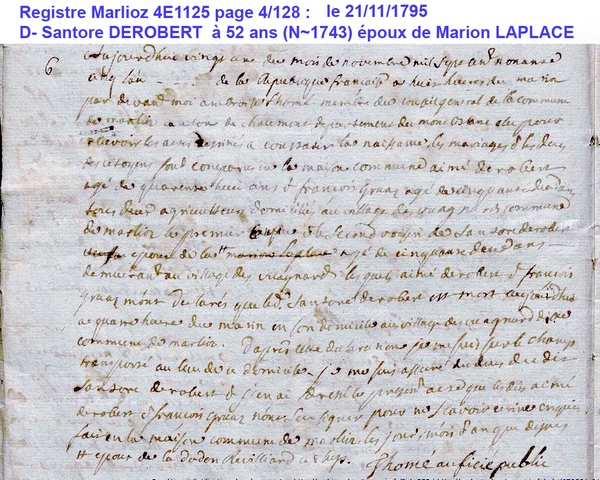 Registre Marlioz 4E1125 page 4/128 : le 21/11/1795
D- Santore DEROBERT à 52 ans (N~1743) époux de Marion LAPLACE
6 aujourdhuy vingt une du mois de novembre mil sept cent nonante
cinq lan - - - de la Republique francaise a huit heures du matin
par devant moi ambroise thomé membre du conseil general de la commune
de marlioz canton de chaumont departement du mont blanc elu pour
recevoir les actes destinés a constater la naissance les mariages et les deces
des citoyens sont comparus en la maison commune aimé derobert
agé de quarante huit ans et francois gruaz agé de cinquante
tous deux agriculteurs domiciliés au village des commune
de marlioz le premier et le second voisin de Santore derobert
epoux de la marion laplace agé de cinquante deux ans
demeurant au village des lesquels aimé derobert et francois
gruaz mont declarés que led. Santore derobert est mort aujourdhui
a quatre heures du matin en son domicile au village des
commune de marlioz. D'après cette declaration je me suis sur le champ
transporté au lieu de ce domicile je me suis assuré du deces du dit
Santore derobert et j'en ai dressé le present acte que lesdits aimé
derobert et francois gruaz n'ont su signer pour ne scavoir ecrire enquis
fait en la maison commune de marlioz les jour, mois et an que dessus
# epoux de la dodon
Thomé officié public